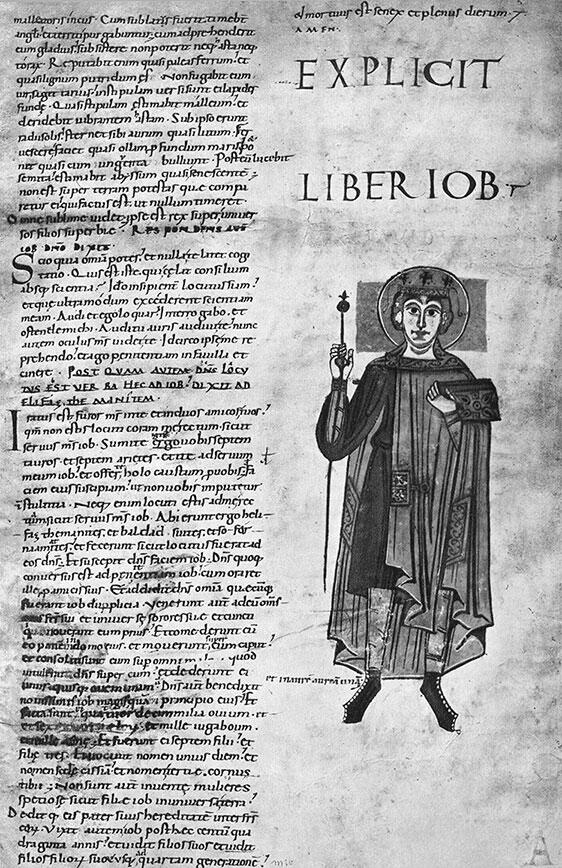 malleatoris incus. Cum sublatus fuerit timebt
angli et territi purgabuntur, cum adprehenderit
eum gladius, subsistere non poterit neq; asta neq;
torax. Reputabit enim quasi paleas ferrum et
quasi lignum putridum es. Non fugabit eum
vir sagittarius, in stipulam versi sunt ei lapides
funde. Quasi stipulam estimabit malleum, et
deridebit vibrantem astam. Sub ipso erunt
radii solis, sternet sibi aurum quasi lutum. Fer
vescere faciet quasi ollam profundum maris, po
net quasi cum ungenta bulliunt. Post eum lucebit
semita, estimabit abyssum quasi senescente
non est super terram potestas que compa
retur ei qui factus est ut nullum timeret.
Omne sublime videt, ipse est rex super univer
sos filios superbie. RESPONDENS AUT
IOB DNO DIXIT.
Scio quia omnia potes, et nulla te latet cogi
tatio. Quis est iste qui celat consilium
absq; scientia. Ido insipienter locutus sum
et que ultra modum excederent scientiam
meam. Audi et ego loquar, interrogabo, et
ostende michi. Auditu auris audivi te, nunc
autem oculus ms videt te. Idcirco ipse me re
prehendo, et ago penitentiam in favilla et
cinere. POST QUAM AUTEM DNS LOCV
TUS EST VERBA HEC AD IOB, DIXIT AD
ELIFAZ THEMANITEM.
Iratus est furor ms in te et in duos amicos tuos,
qm non estis locuti coram me rectum, sicut
servus ms iob. Sumite ergo vobis septem
tauros, et septem arietes, et ite ad servum
meum iob, et offerte holocaustum pro vobis. Fa
ciem eius suscipiam, ut non vobis imputetur
stultitia. Neq; enim locuti estis ad me rec
ta sicut servus ms iob. Abierunt ergo heli
faz themanites, et baldad suites, et sofar
naamites, et fecerunt sicut locutus fuerat ad
eos dns. Et suscepit dns faciem iob. Dns quoq;
conversus est ad penitentiam iob, cum oraret
ille pro amicis suis. Et addidit dns omnia quecuq;
fuerant iob dupplicia. Venerunt aut ad eum oms
frs sui et universe sorores sue et cuncti
qui noverant eum prius. Et comederunt cu
eo panem in domo eius, et moverunt super eum caput,
et consolati sunt eum super omni malo quod
intulerat dns super eum. et dederunt ei
unusquisque ovem unam. Dns aut benedixit
novissimis iob magis quam principio eius. Et
facta sunt quattuordecim milia ovium, et
et sex milia et mille iuga boum,
et mille asine. Et fuerunt ei septem filii, et
filie tres. Et vocavit nomen unius diem, et
nomen secde cassia, et nomen tertie cornus
tibii. Non sunt aut invente mulieres
speciose sicut filie iob in universa terra.
Dedit q; eis pater suus hereditate inter frs
eoru. Vixit autem iob post hec centum qua
draginta annis, et vidit filios suos et
filios filioru suoru usq; ad quartam generatione,
et mortuus est senex et plenus dierum.
AMEN.
EXPLICIT
LIBER IOB